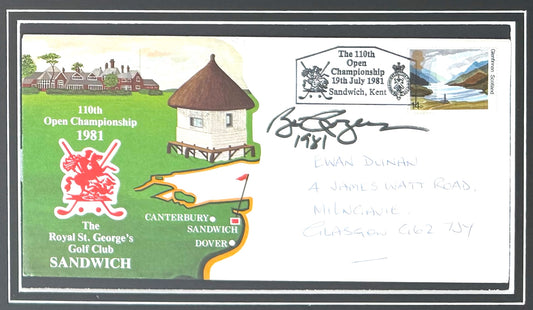 110th
Open Championship
1981
The
Royal St. George's
Golf Club
SANDWICH
CANTERBURY
SANDWICH
DOVER
The 110th
Open
Championship
19th July 1981
Sandwich, Kent
14
Glenfinnan Scotland
Bill Rogers
1981
EWAN DUNAN
4 JAMES WATT ROAD.
MILNGAVIE.
GLASGOW G62 7JY